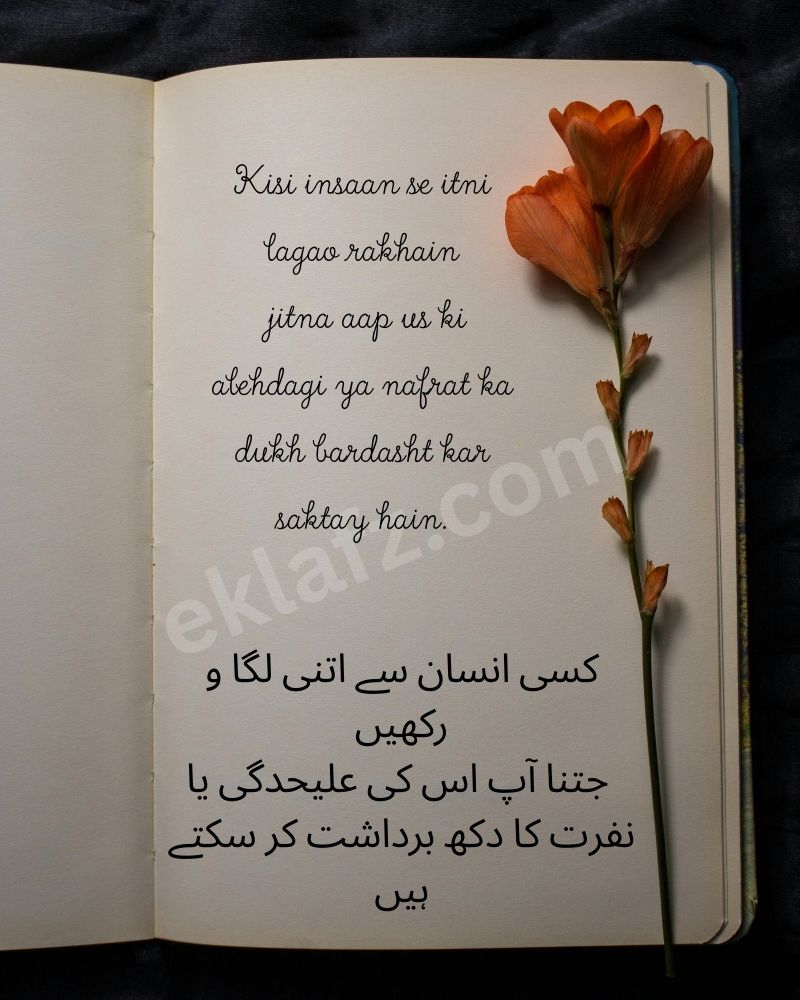 Kisi insaan se itni
lagao rakhain
jitna aap us ki
alehdagi ya nafrat ka
dukh bardasht kar
saktay hain.
eklafz.com
کسی انسان سے اتنی لگا و
رکھیں
جتنا آپ اس کی علیحدگی یا
نفرت کا دکھ برداشت کر سکتے
ہیں